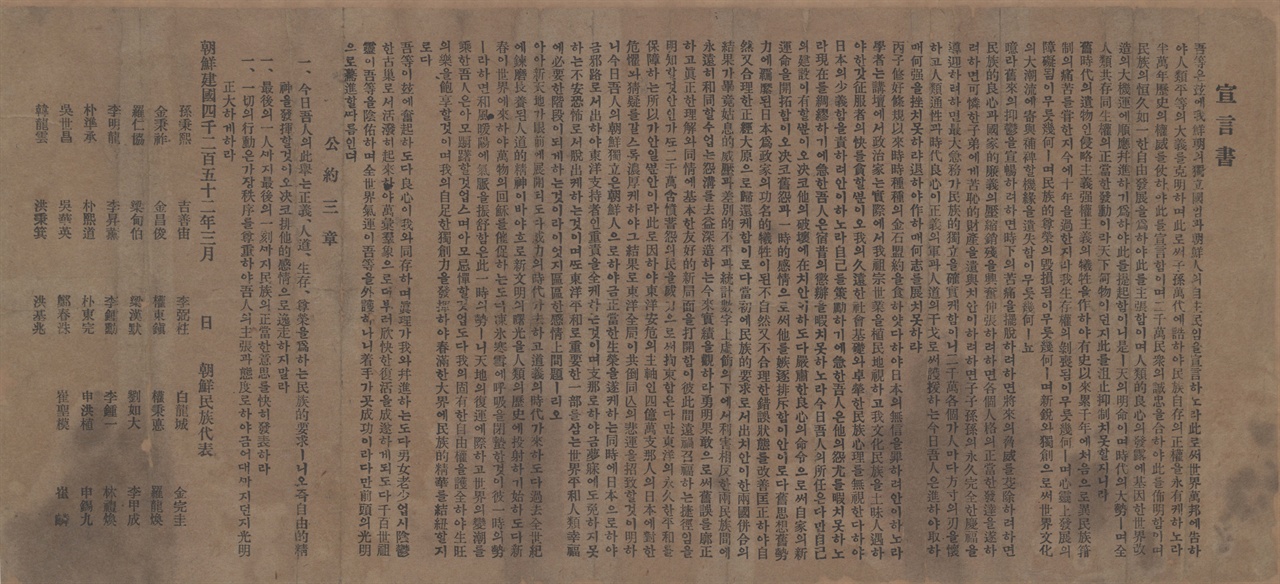 宣言書
吾等은玆에我鮮朝의獨立國임과朝鮮人의自主民임을宣言하노라此로써世界萬邦에告하
야人類平等의大義를克明하며此로써子孫萬代에誥하야民族自存의正權을永有케하노라
半萬年歷史의權威를仗하야此를宣言함이며二千萬民衆의誠忠을合하야此를佈明함이며
民族의恒久如一한自由發展을爲하야此를主張함이며人類的良心의發露에基因한世界改
造의大機運에順應幷進하기爲하야此를提起함이니是ㅣ天의明命이며時代의大勢ㅣ며全
人類共存同生權의正當한發動이라天下何物이던지此를沮止抑制치못할지니라
舊時代의遺物인侵略主義强權主義의犧牲을作하야有史以來累千年에처음으로異民族箝
制의痛苦를嘗한지今에十年을過한지라我生存權의剝喪됨이무릇幾何ㅣ며心靈上發展의
障礙됨이무릇幾何ㅣ며民族的尊榮의毁損됨이무릇幾何ㅣ며新銳와獨創으로써世界文化
의大潮流에寄與補裨할機緣을遺失함이무릇幾何ㅣ뇨
噫라舊來의抑鬱을宣暢하려하면時下의苦痛을擺脫하려하면將來의脅威를芟除하려하면
民族的良心과國家的廉義의壓縮銷殘을興奮伸張하려하면各個人格의正當한發達을遂하
려하면可憐한子弟에게苦恥的財産을遺與치안이하려하면子子孫孫의永久完全한慶福을
導迎하려하면最大急務가民族的獨立을確實케함이니二千萬各個가人마다方寸의刃을懷
하고人類通性과時代良心이正義의軍과人道의干戈로써護援하는今日吾人은進하야取하
매何强을挫치못하랴退하야作하매何志를展치못하랴
丙子修好條規以來時時種種의金石盟約을食하얏다하야日本의無信을罪하려안이하노라
學者는講壇에서政治家는實際에서我祖宗世業을植民地視하고我文化民族을土昧人遇하
야한갓征服者의快를貪할뿐이오我의久遠한社會基礎와卓犖한民族心理를無視한다하야
日本의少義함을責하려안이하노라自己를策勵하기에急한吾人은他의怨尤를暇치못하노
라現在를綢繆하기에急한吾人은宿昔의懲辯을暇치못하노라今日吾人의所任은다만自己
의建設이有할뿐이오決코他의破壞에在치안이하도다嚴肅한良心의命令으로써自家의新
運命을開拓함이오決코舊怨과一時的感情으로써他를嫉逐排斥함이안이로다舊思想舊勢
力에羈縻된日本爲政家의功名的犧牲이된不自然又不合理한錯誤狀態를改善匡正하야自
然又合理한正經大原으로歸還케함이로다當初에民族的要求로서出치안이한兩國倂合의
結果가畢竟姑息的威壓과差別的不平과統計數字上虛飾의下에서利害相反한兩民族間에
永遠히和同할수업는怨溝를去益深造하는今來實績을觀하라勇明果敢으로써舊誤를廓正
하고眞正한理解와同情에基本한友好的新局面을打開함이彼此間遠禍召福하는捷徑임을
明知할것안인가또二千萬含憤蓄怨의民을威力으로써拘束함은다만東洋의永久한平和를
保障하는所以가안일뿐안이라此로因하야東洋安危의主軸인四億萬支那人의日本에對한
危懼와猜疑를갈스록濃厚케하야그結果로東洋全局이共倒同亡의悲運을招致할것이明하
니今日吾人의朝鮮獨立은朝鮮人으로하야금正當한生榮을遂케하는同時에日本으로하야
금邪路로서出하야東洋支持者인重責을全케하는것이며支那로하야금夢寐에도免하지못
하는不安恐怖로서脫出케하는것이며또東洋平和로重要한一部를삼는世界平和人類幸福
에必要한階段이되게하는것이라이엇지區區한感情上問題ㅣ리오
아아新天地가眼前에展開되도다威力의時代가去하고道義의時代가來하도다過去全世紀
에鍊磨長養된人道的精神이바야흐로新文明의曙光을人類의歷史에投射하기始하도다新
春이世界에來하야萬物의回穌를催促하는도다凍氷寒雪에呼吸을閉蟄한것이彼一時의勢
ㅣ라하면和風暖陽에氣脈을振舒함은此一時의勢ㅣ니天地의復運에際하고世界의變潮를
乘한吾人은아모躊躇할것업스며아모忌憚할것업도다我의固有한自由權을護全하야生旺
의樂을飽享할것이며我의自足한獨創力을發揮하야春滿한大界에民族的精華를結紐할지
로다
吾等이玆에奮起하도다良心이我와同存하며眞理가我와幷進하는도다男女老少업시陰鬱
한古巢로서活潑히起來하야萬彙羣象으로더부러欣快한復活을成遂하게되도다千百世祖
靈이吾等을陰佑하며全世界氣運이吾等을外護하나니着手가곳成功이라다만前頭의光明
으로驀進할따름인뎌
公約三章
一、今日吾人의此擧는正義、人道、生存、尊榮을爲하는民族的要求ㅣ니오즉自由的精
神을發揮할것이오決코排他的感情으로逸走하지말라
一、最後의一人까지最後의一刻까지民族의正當한意思를快히發表하라
一、一切의行動은가장秩序를尊重하야吾人의主張과態度로하야금어대까지던지光明
正大하게하라
朝鮮建國四千二百五十二年三月 日 朝鮮民族代表
孫秉熙 吉善宙 李弼柱 白龍城 金完圭
金秉祚 金昌俊 權東鎭 權秉悳 羅龍煥
羅仁協 梁甸伯 梁漢默 劉如大 李甲成
李明龍 李昇薰 李鍾勳 李鍾一 林禮煥
朴準承 朴熙道 朴東完 申洪植 申錫九
吳世昌 吳華英 鄭春洙 崔聖模 崔麟
韓龍雲 洪秉箕 洪基兆